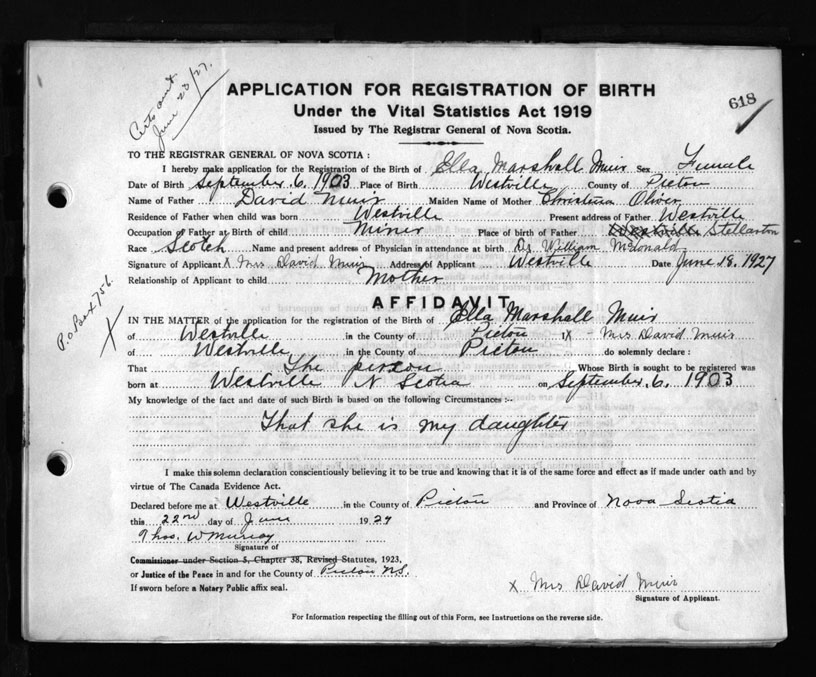 Certs aunt.
June 23/27.
618
APPLICATION FOR REGISTRATION OF BIRTH
Under the Vital Statistics Act 1919
Issued by The Registrar General of Nova Scotia.
TO THE REGISTRAR GENERAL OF NOVA SCOTIA :
I hereby make application for the Registration of the Birth of Ella Marshall Muir Sex Female
Date of Birth September. 6. 1903 Place of Birth Westville County of Pictou
Name of Father David Muir Maiden Name of Mother Christena Oliver
Residence of Father when child was born Westville Present address of Father Westville
Occupation of Father at Birth of child Miner Place of birth of Father Westville Stellarton
Race Scotch Name and present address of Physician in attendance at birth Dr. William McDonald
Signature of Applicant X Mrs David Muir Address of Applicant Westville Date June 18. 1927
Relationship of Applicant to child Mother
P.O Box 756.
X
AFFIDAVIT
IN THE MATTER of the application for the registration of the Birth of Ella Marshall Muir
of Westville in the County of Pictou IX - Mrs David Muir
of Westville in the County of Pictou do solemnly declare :
That The person Whose Birth is sought to be registered was
born at Westville N Scotia on September. 6. 1903
My knowledge of the fact and date of such Birth is based on the following Circumstances :-
That she is my daughter
I make this solemn declaration conscientiously believing it to be true and knowing that it is of the same force and effect as if made under oath and by
virtue of The Canada Evidence Act.
Declared before me at Westville in the County of Pictou and Province of Nova Scotia
this 22nd day of June 1927
Thos. W Murray
Signature of
Commissioner under Section 5, Chapter 38, Revised Statutes, 1923,
or Justice of the Peace in and for the County of Pictou N.S.
If sworn before a Notary Public affix seal.
X Mrs David Muir
Signature of Applicant.
For Information respecting the filling out of this Form, see Instructions on the reverse side.